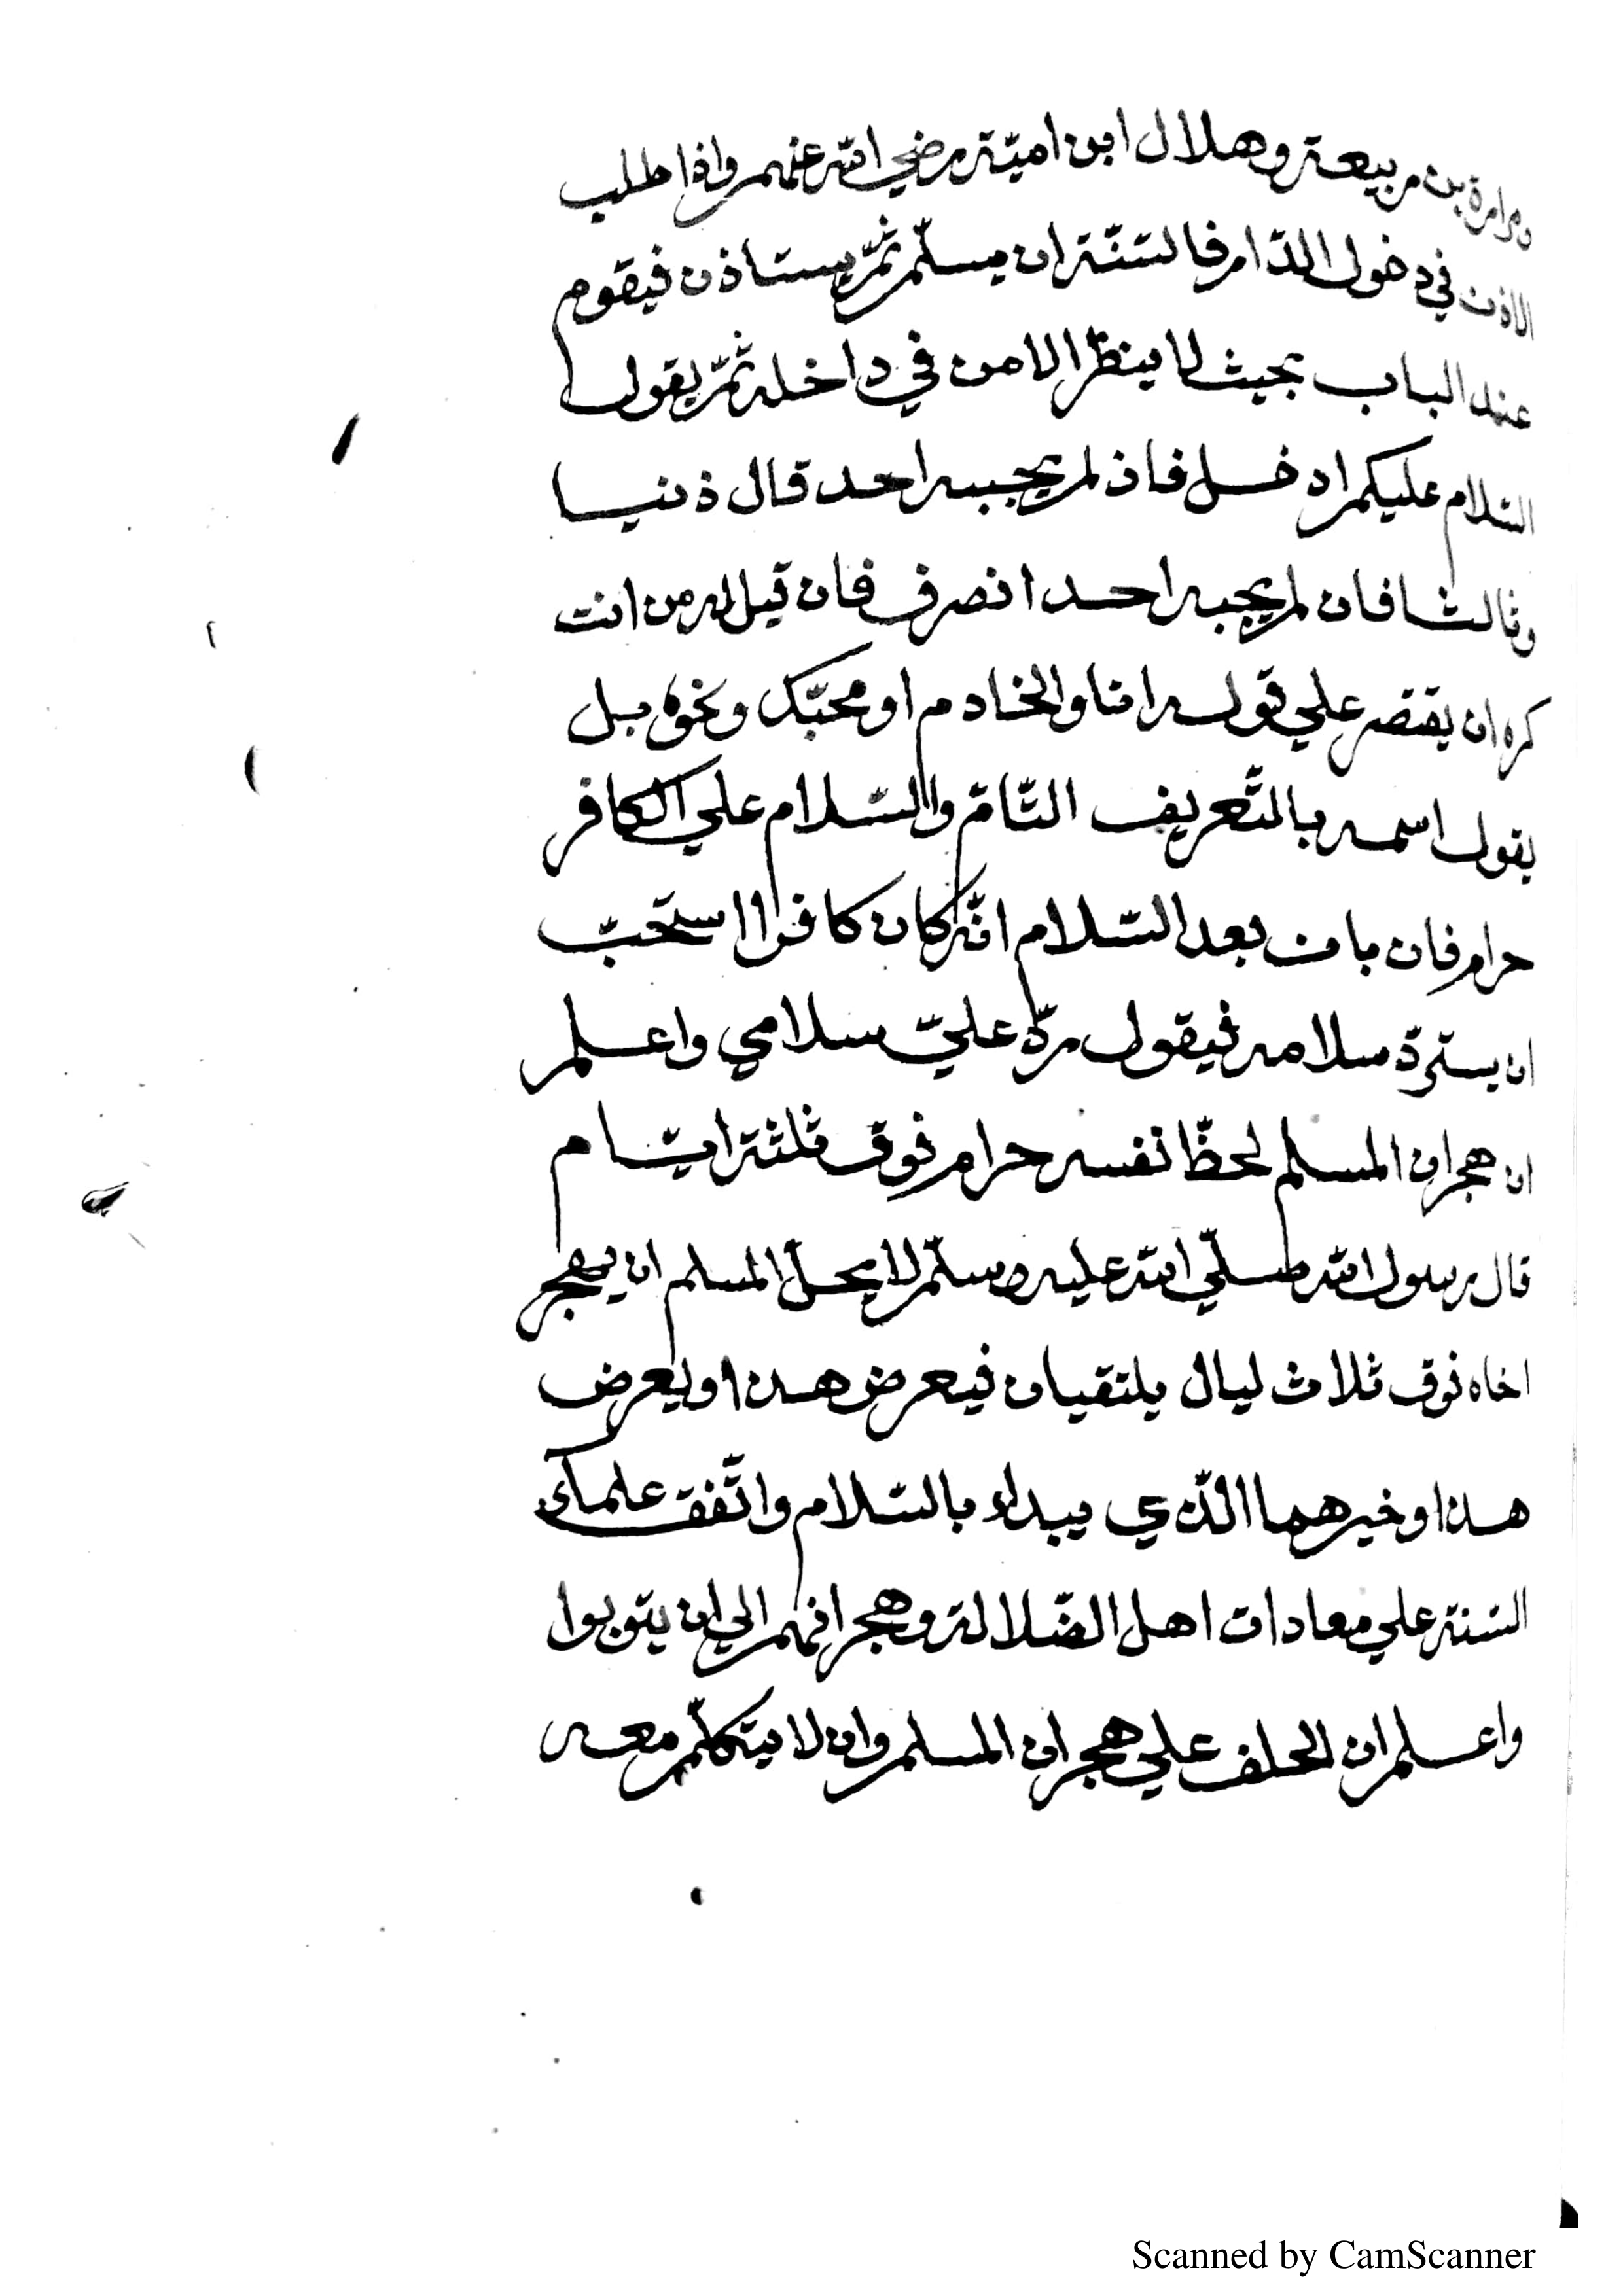 ومرارة بن ربيعة وهلال ابن اميّة رضي الله عنهم واذا طلب
الاذن في دخول الدّار فالسّنّة ان يسلّم ثمّ يستاذن فيقوم
عند الباب بحيث لا ينظر الا من في داخله ثمّ يقول
السّلام عليكم ادخل فاذ لم يجبه احد قال ذنيا
وثالثا فان لم يجبه احد انصرف فان قيل له من انت
كره ان يقتصر علي قوله انا والخادم او محبّك ونحوه بل
يقول اسمه بالتّعريف التّامّ والسّلام علي الكافر
حرام فان بان بعد السّلام انّه كان كافرا استحبّ
ان يستردّ سلامه فيقول ردّ عليّ سلامي واعلم
ان هجران المسلم لحظّ نفسه حرام فوق ثلثة ايّام
قال رسول الله صلّي الله عليه وسلّم لا يحلّ المسلم ان يهجر
اخاه فوق ثلاث ليال يلتقيان فيعرض هذا ويعرض
هذا وخيرهما الّذي يبداء بالسّلام واتّفق علماء
السّنة علي معادات اهل الضّلالة وهجرانهم الي ان يتوبوا
واعلم ان الحلف علي هجران المسلم وان لا يتكلّم معه
Scanned by CamScanner